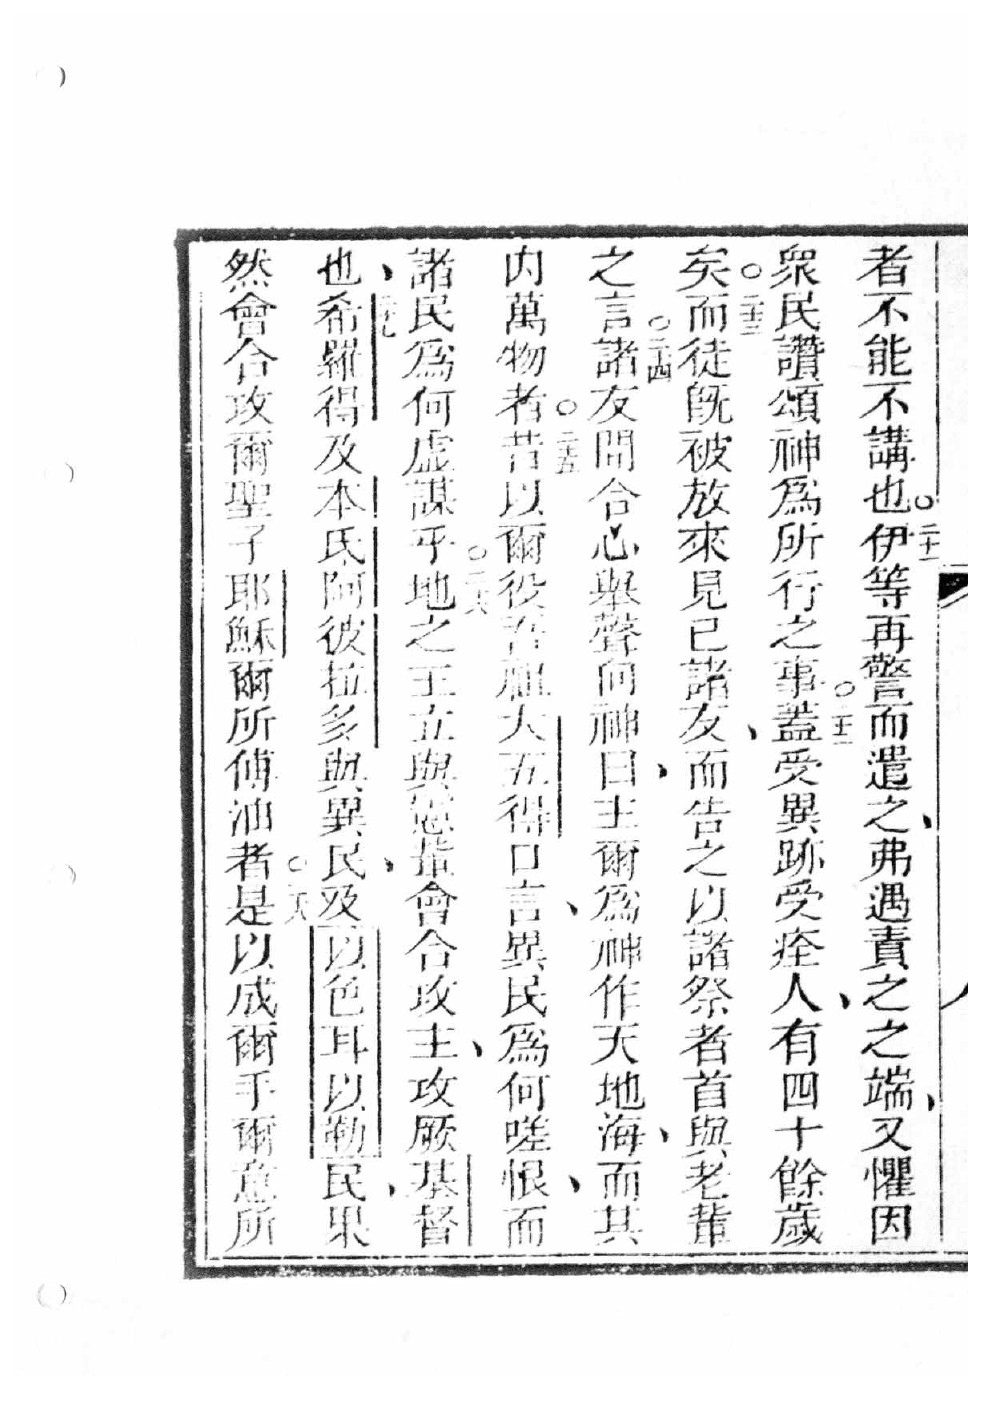 者不能不講也○二十一伊等再警而遣之、弗遇責之之端、又懼因
衆民讚頌神爲所行之事○二十二蓋受異跡受痊人、有四十餘歲
矣○二十三而徒旣被放來見已諸友、而告之以諸祭者首與老輩
之言○二十四諸友聞合心舉聲向神曰、主爾爲神作天地海、而其
內萬物者○二十五昔以爾役吾祖大五得口言、異民爲何嗟恨、而
諸民爲何虛謀乎○二十六地之王立與憲輩會合攻主、攻厥基督
也、二十七希羅得及本氏阿彼拉多與異民、及以色耳以勒民、果
然會合攻爾聖子耶穌爾所傅油者○二十八是以成爾手爾意所